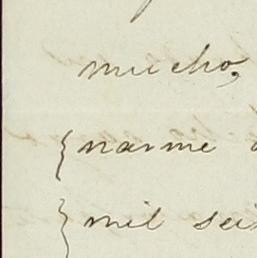 mucho,
narme
mil seis